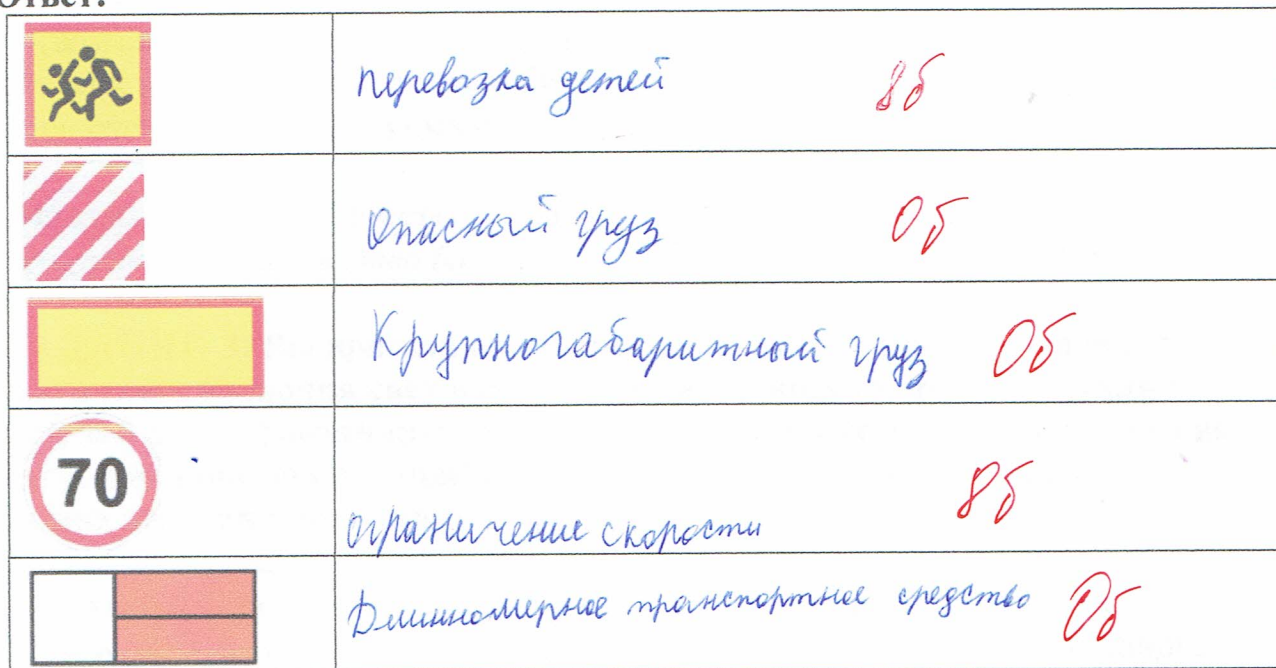 Ответ:
перевозка детей 8б
Опасный груз 0б
Крупногабаритный груз 0б
70
ограничение скорости 8б
Длинномерное транспортное средство 0б